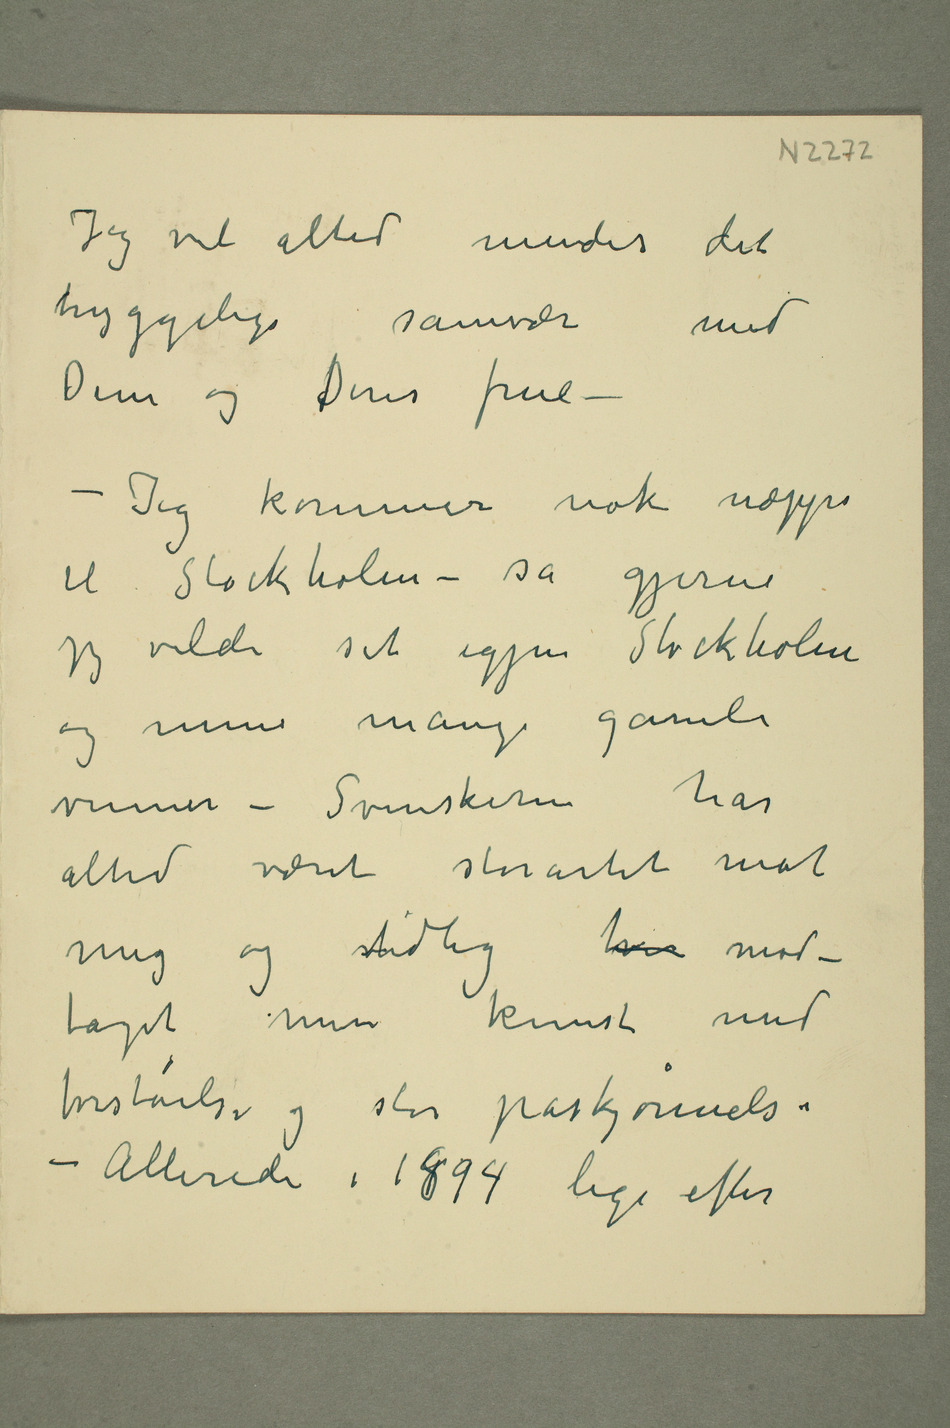 N2272
Jeg vil altid mindes det
hyggelige samvær med
Dem og Deres frue –
– Jeg kommer nok næppe
til Stockholm – så gjerne
jeg vilde set igjen Stockholm
og mine mange gamle
venner – Svenskerne har
altid været storartet mot
mig og tidlig hvis mod-
taget min kunst med
forståelse og stor påskjønnelse.
– Allerede i 1894 lige efter